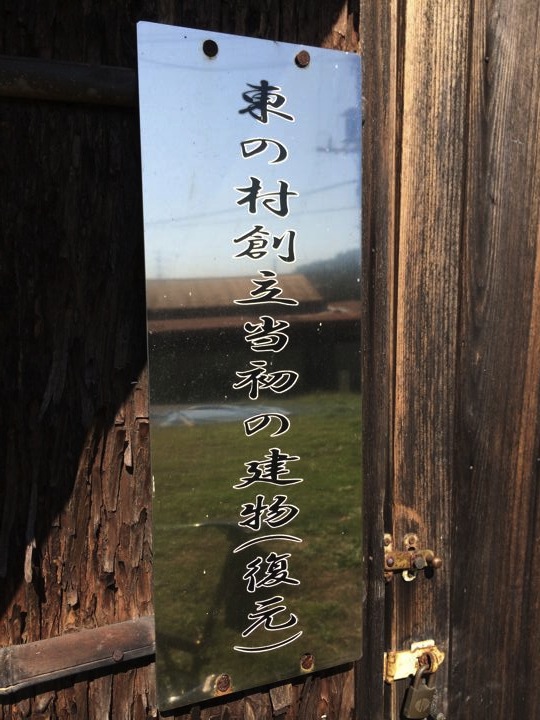 東の村創立当初の建物(復元)